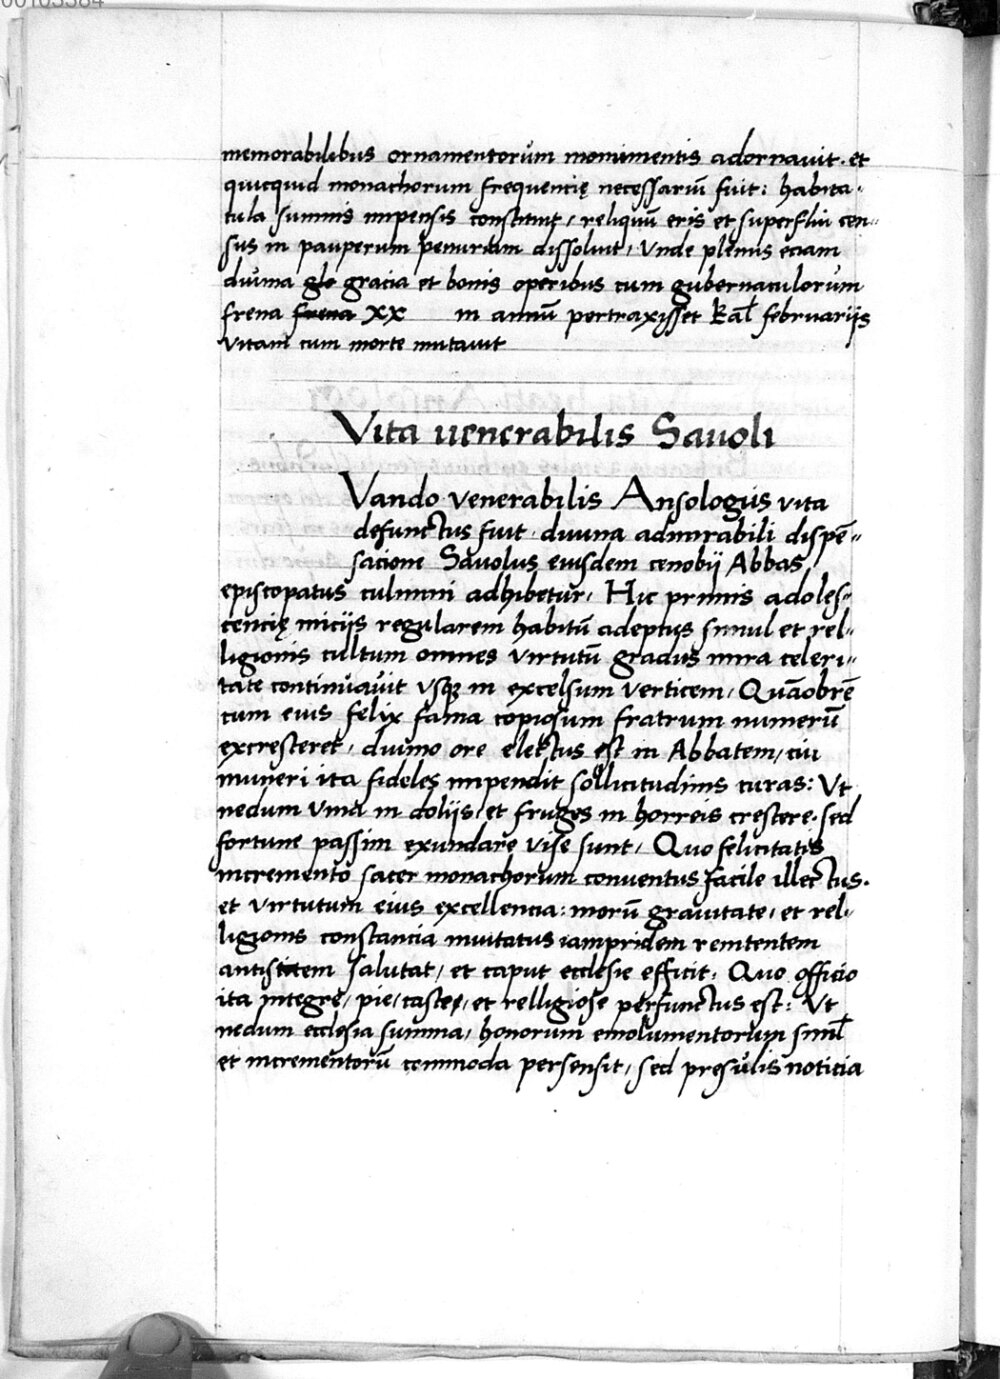 00103384
memorabilibus ornamentorum monimentis adornauit. et
quicquid monachorum frequencię necessariū fuit: habita-
cula summis impensis constituit, reliquū eris et superflui cen-
sus in pauperum penuriam dissoluit, Vnde plenus eciam
diuina glo gracia et bonis operibus cum gubernaculorum
frena frena XX in annū pertraxisset Kal februariis
vitam cum morte mutauit
Vita uenerabilis Sauoli
Vando venerabilis Ansologus vita
defunctus fuit. diuina admirabili dispē-
sacione Sauolus eiusdem cenobij Abbas
episcopatus culmini adhibetur, Hic primis adoles-
cencię iniciis regularem habitū adeptus simul et rel-
ligionis cultum omnes virtutū gradus mira celeri-
tate continuauit vsq in excelsum verticem, Quāobrē
cum eius felix fama copiosum fratrum numerū
excresceret, diuino ore electus est in Abbatem, cui
muneri ita fideles impendit sollicitudinis curas: Vt
nedum vina in doliis, et fruges in horreis crescere. sed
fortune passim exundare vise sunt, Quo felicitatis
incremento sacer monachorum conuentus facile illectus.
et virtutum eius excellencia: morū grauitate, et rel-
ligionis constancia inuitatus iampridem renitentem
antistitem salutat, et caput ecclesie efficit, Quo officio
ita integre, pie, caste, et relligiose perfunctus est: Vt
nedum ecclesia summa, honorum emolumentorum simul
et incrementorū commoda persensit, sed presulis noticia